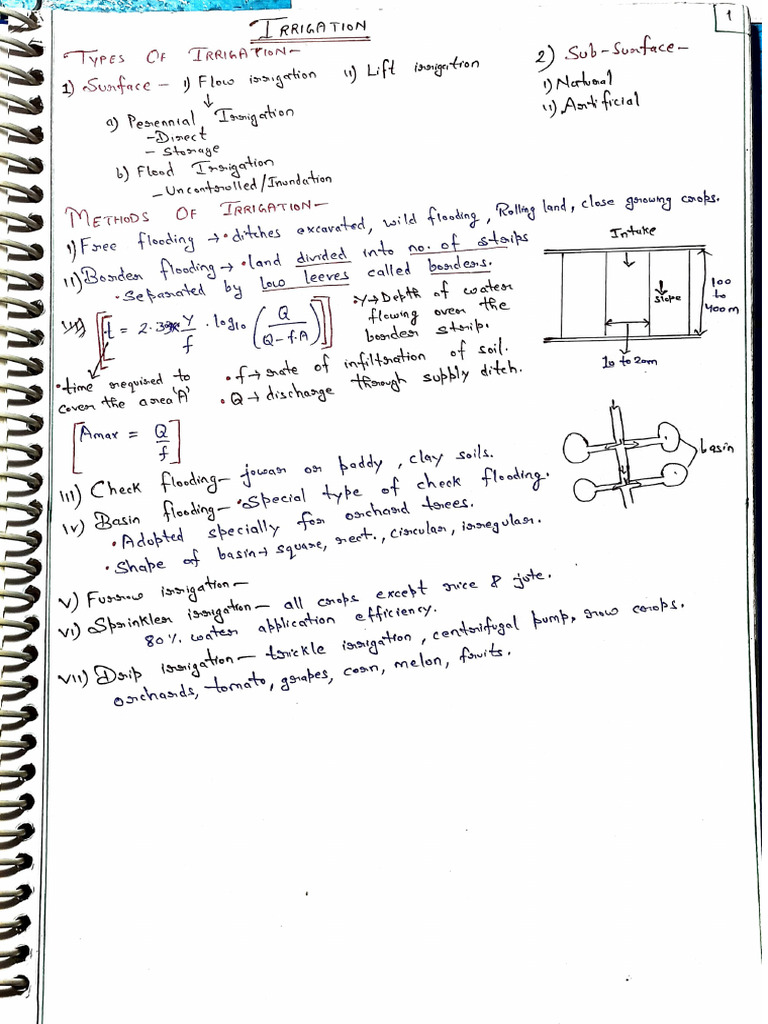 1
IRRIGATION
TYPES OF IRRIGATION-
1) Surface - i) Flow irrigation ii) Lift irrigation
a) Perennial Irrigation
- Direct
- Storage
b) Flood Irrigation
- Uncontrolled/Inundation
2) Sub-Surface-
i) Natural
ii) Artificial
METHODS OF IRRIGATION-
i) Free flooding → • ditches excavated, wild flooding, Rolling land, close growing crops.
ii) Border flooding → • land divided into no. of strips
• Separated by low leeves called borders.
[t = 2.3 Y/f . log10 (Q/(Q-f.A))]
• Y → Depth of water
flowing over the
border strip.
• time required to
cover the area 'A'
• f → rate of infiltration of soil.
• Q → discharge through supply ditch.
Intake
slope
100
to
400m
10 to 20m
[Amax = Q/f]
iii) Check flooding - jowar or paddy, clay soils.
iv) Basin flooding - • Special type of check flooding.
• Adopted specially for orchard trees.
• Shape of basin → square, rect., circular, irregular.
basin
v) Furrow irrigation -
vi) Sprinkler irrigation - all crops except rice & jute.
80% water application efficiency.
vii) Drip irrigation - trickle irrigation, centrifugal pump, row crops.
orchards, tomato, grapes, corn, melon, fruits.